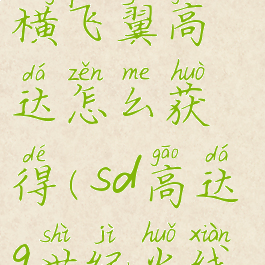 横飞翼高
dá zěn me huò
达怎么获
dé gāo dá
得(sd高达
shì jì huǒ xiàn
g世纪火线